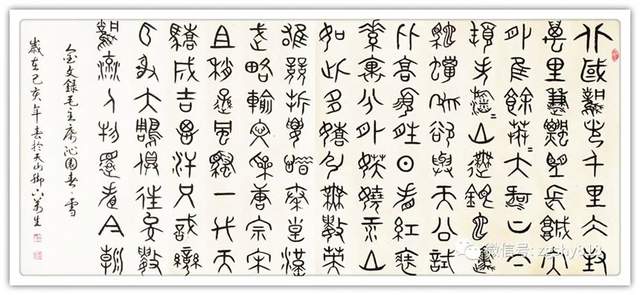 北國風光千里冰封
萬里雪飄望長城內
外惟餘莽=大河上下
頓失滔=山舞銀蛇原
馳蠟象欲與天公試
比高須晴日看紅裝
素裹分外妖嬈江山
如此多嬌引無數英
雄競折腰惜秦皇漢
武略輸文采唐宗宋
祖稍遜風騷一代天
驕成吉思汗只識彎
弓射大鵰俱往矣數
風流人物還看今朝
金文錄毛主席沁園春·雪
歲在己亥年春於天山腳下萬生
微信号: